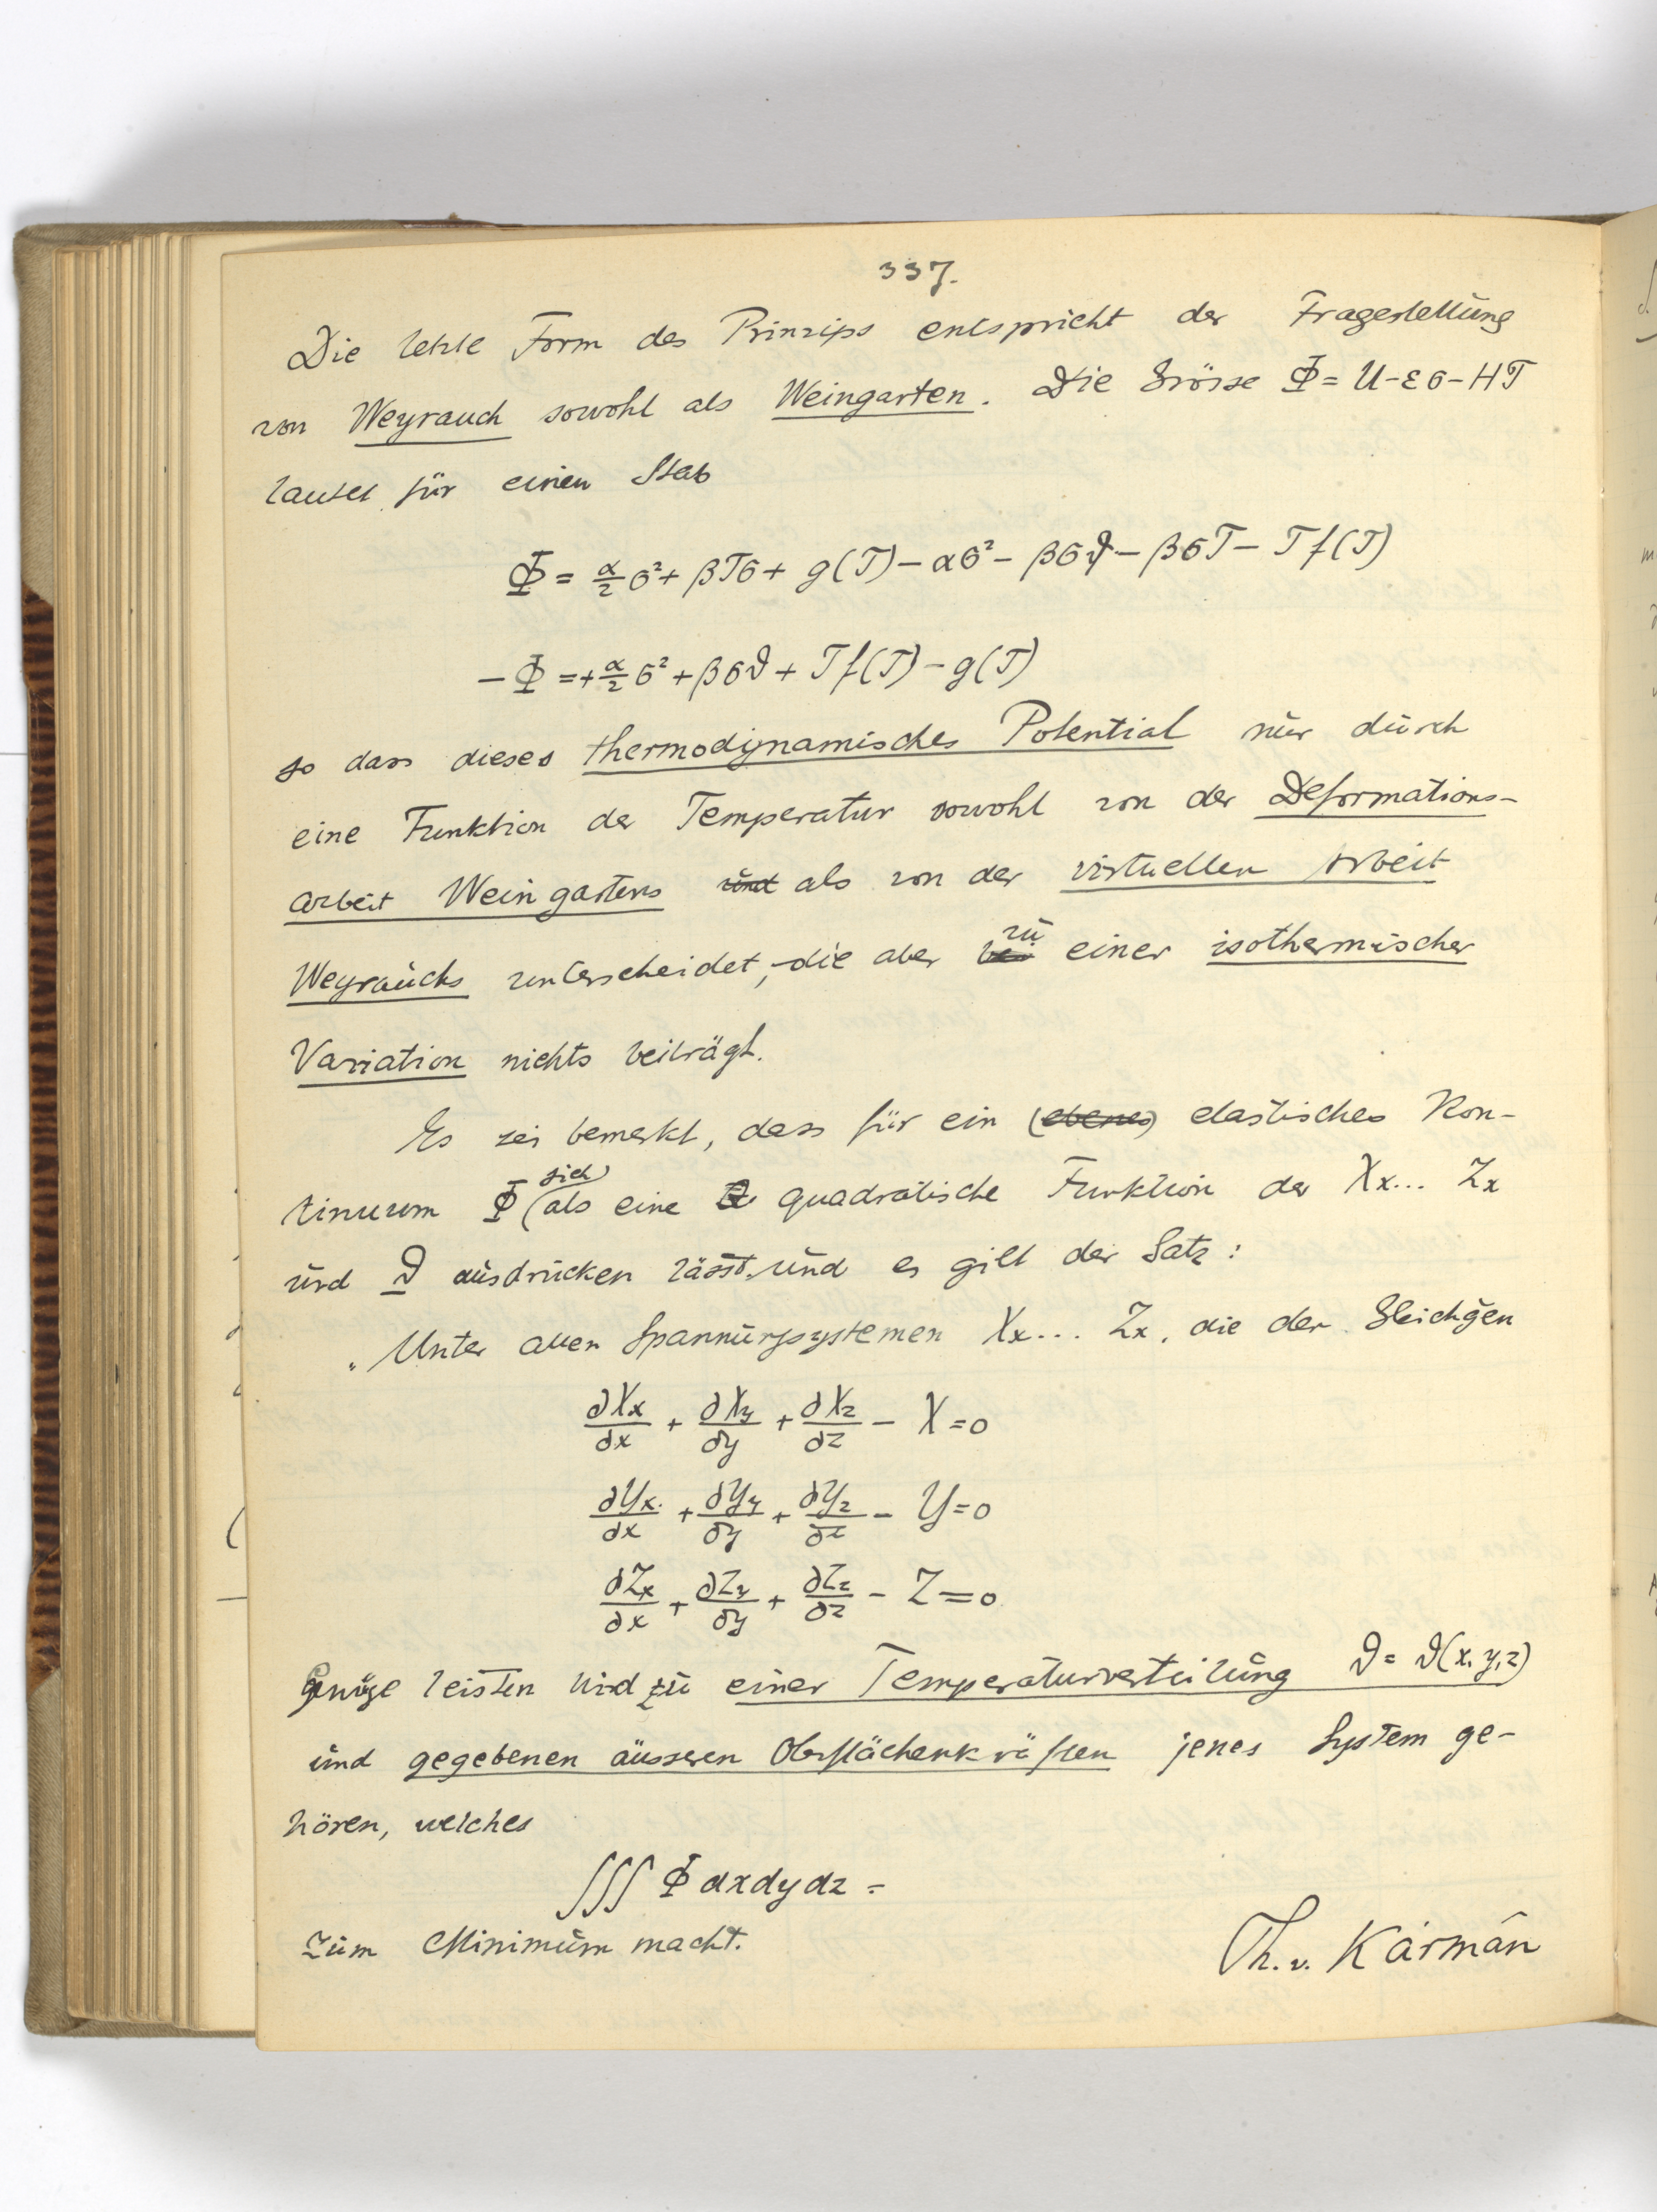 337.
Die letzte Form des Prinzips entspricht der Fragestellung
von Weyrauch sowohl als Weingarten. Die Grösse Φ = U-εσ-HT
lautet für einen Stab
Φ = α/2 σ² + βTσ + g(T) - ασ² - βσϑ - βσT - Tf(T)
-Φ = + α/2 σ² + βσϑ + Tf(T) - g(T)
so dass dieses thermodynamisches Potential nur durch
eine Funktion der Temperatur sowohl von der Deformations-
arbeit Weingartens und als von der virtuellen Arbeit
Weyrauchs unterscheidet, die aber zu einer isothermischer
Variation nichts beiträgt.
Es sei bemerkt, dass für ein (ebenes) elastisches Kon-
tinuum Φ sich als eine quadratische Funktion der Xx... Zx
und ϑ ausdrücken lässt und es gilt der Satz:
"Unter allen Spannungssystemen Xx... Zx, die den Gleichgen
∂Xx/∂x + ∂Xy/∂y + ∂Xz/∂z - X = 0
∂Yx/∂x + ∂Yy/∂y + ∂Yz/∂z - Y = 0
∂Zx/∂x + ∂Zy/∂y + ∂Zz/∂z - Z = 0
Genüge leisten wird zu einer Temperaturverteilung ϑ = ϑ(x,y,z)
und gegebenen äusseren Oberflächenkräften jenes System ge-
hören, welches
∭ Φ dx dy dz =
zum Minimum macht.
Th. v. Kármán